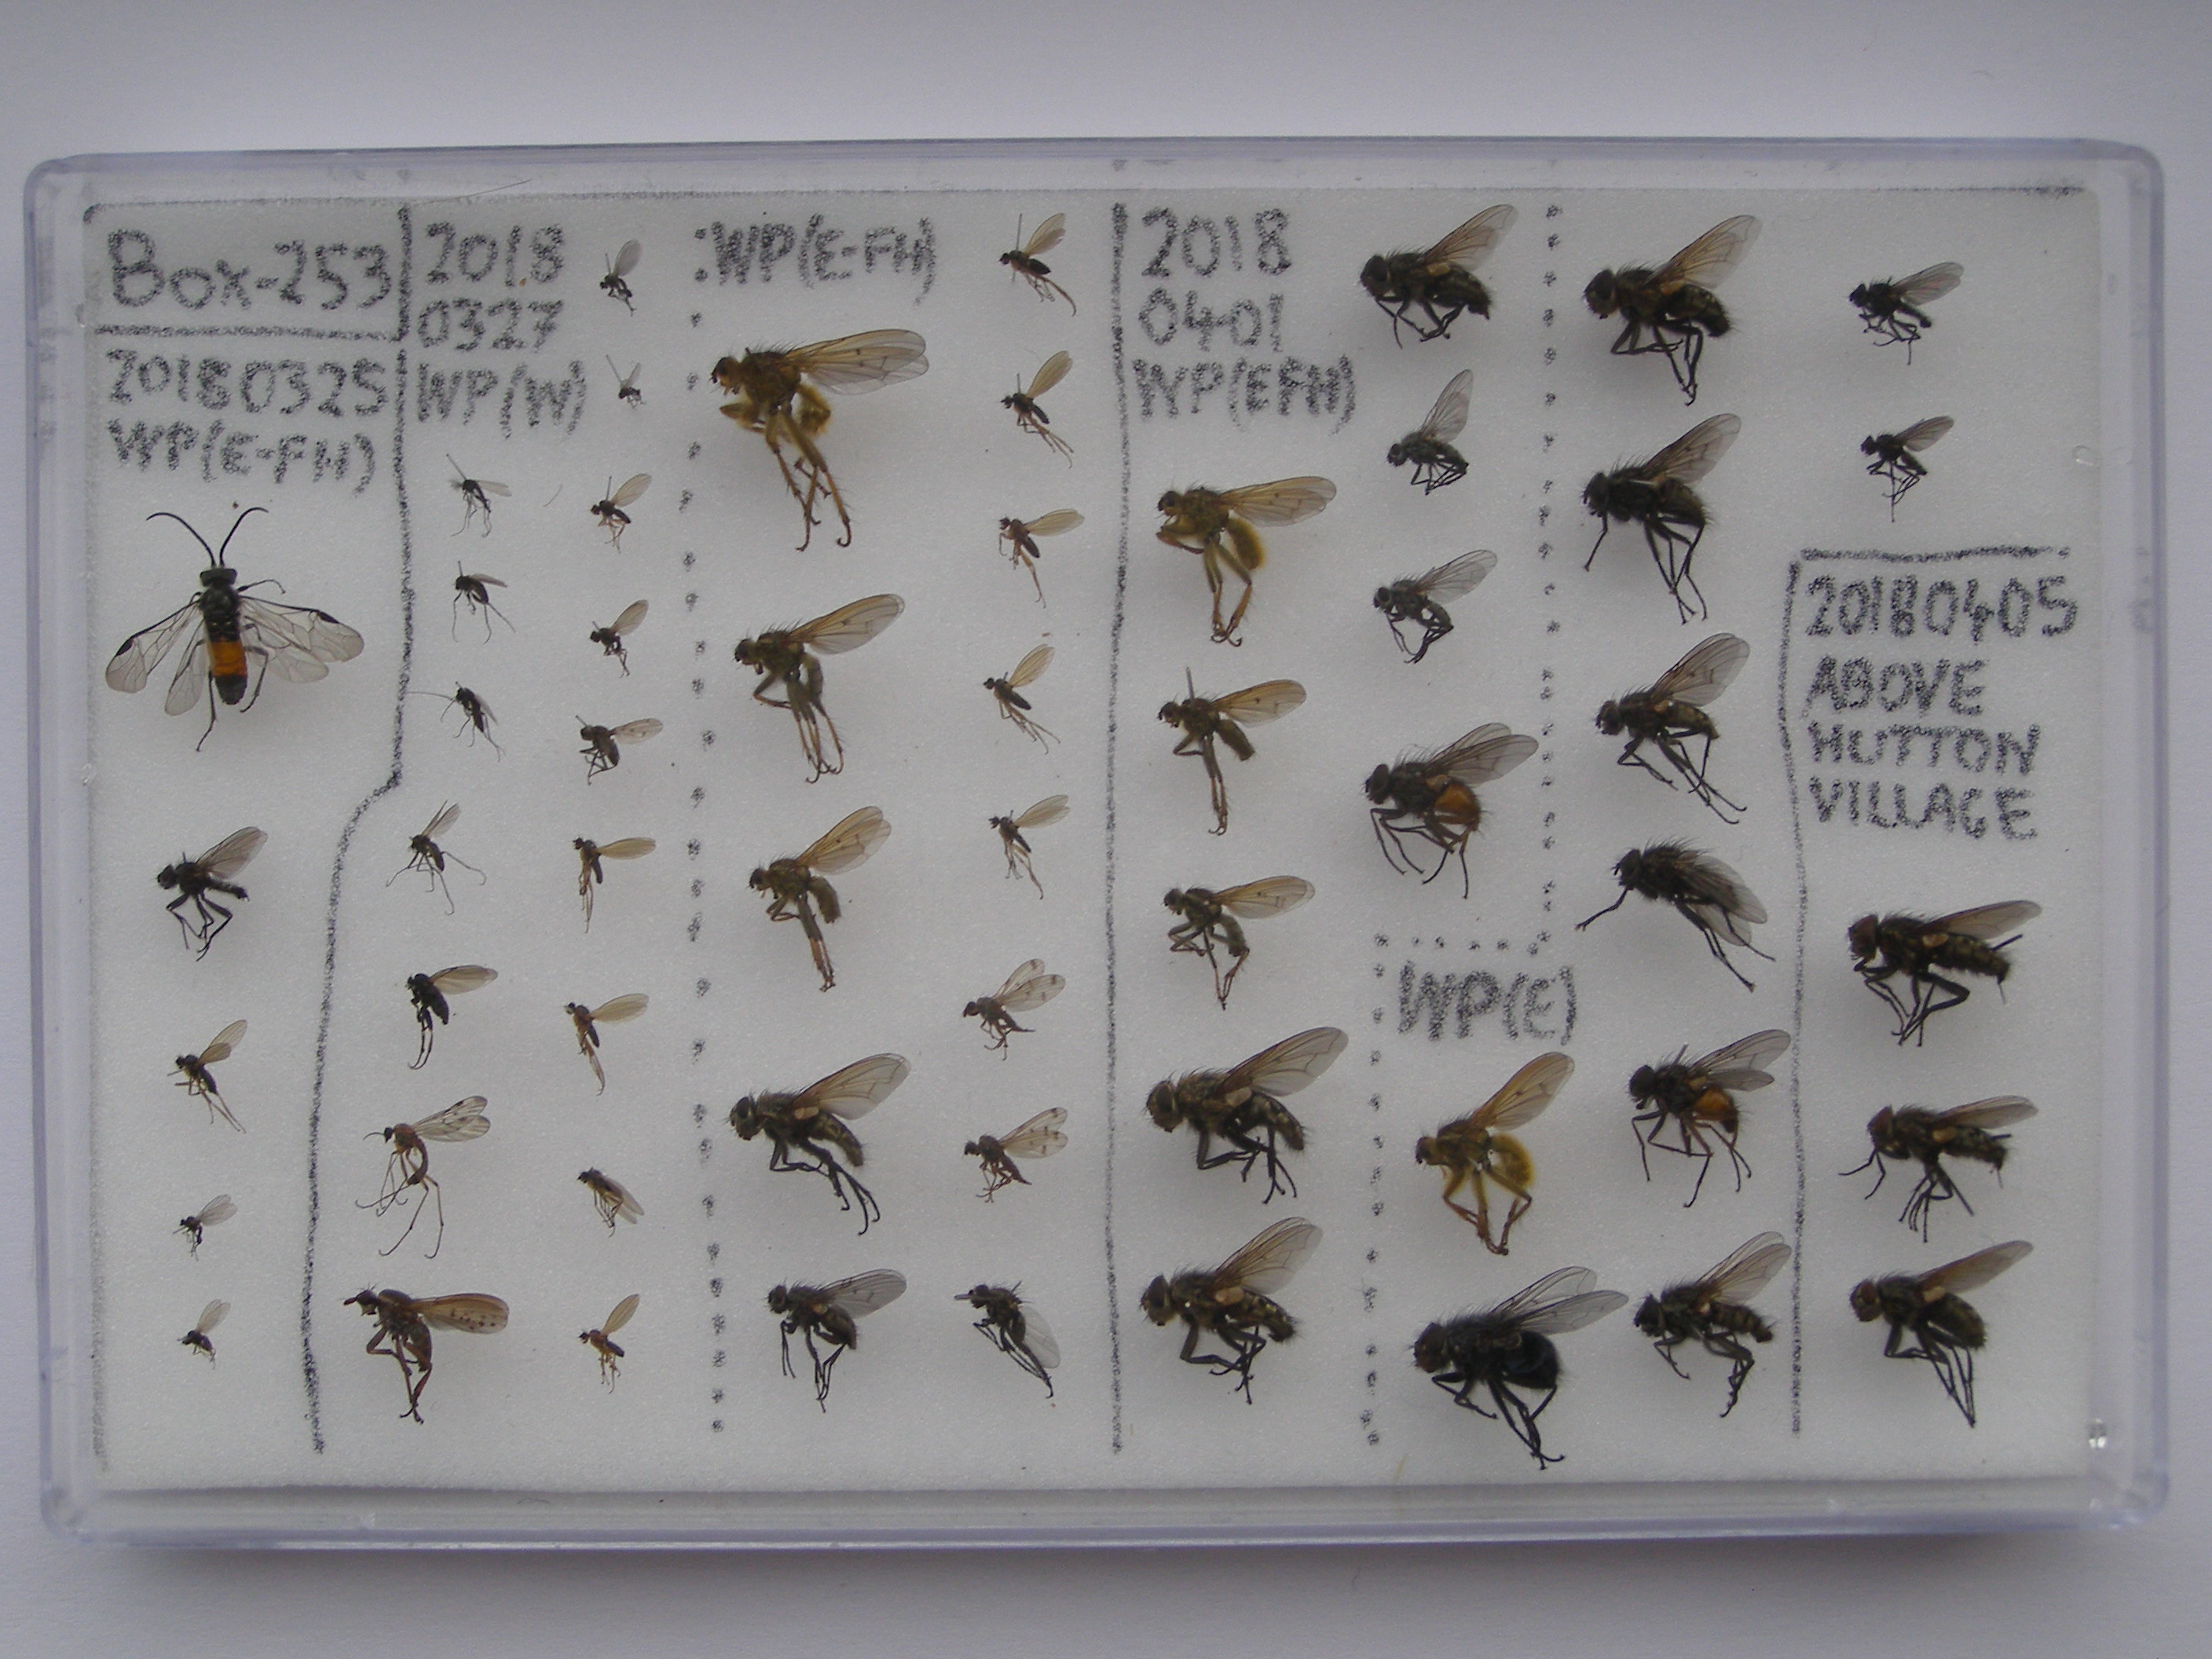 Box-253
20180325
WP(E-FH)
2018
0327
WP(W)
WP(E-FH)
2018
0401
WP(EFH)
WP(E)
20180405
ABOVE
HUTTON
VILLAGE